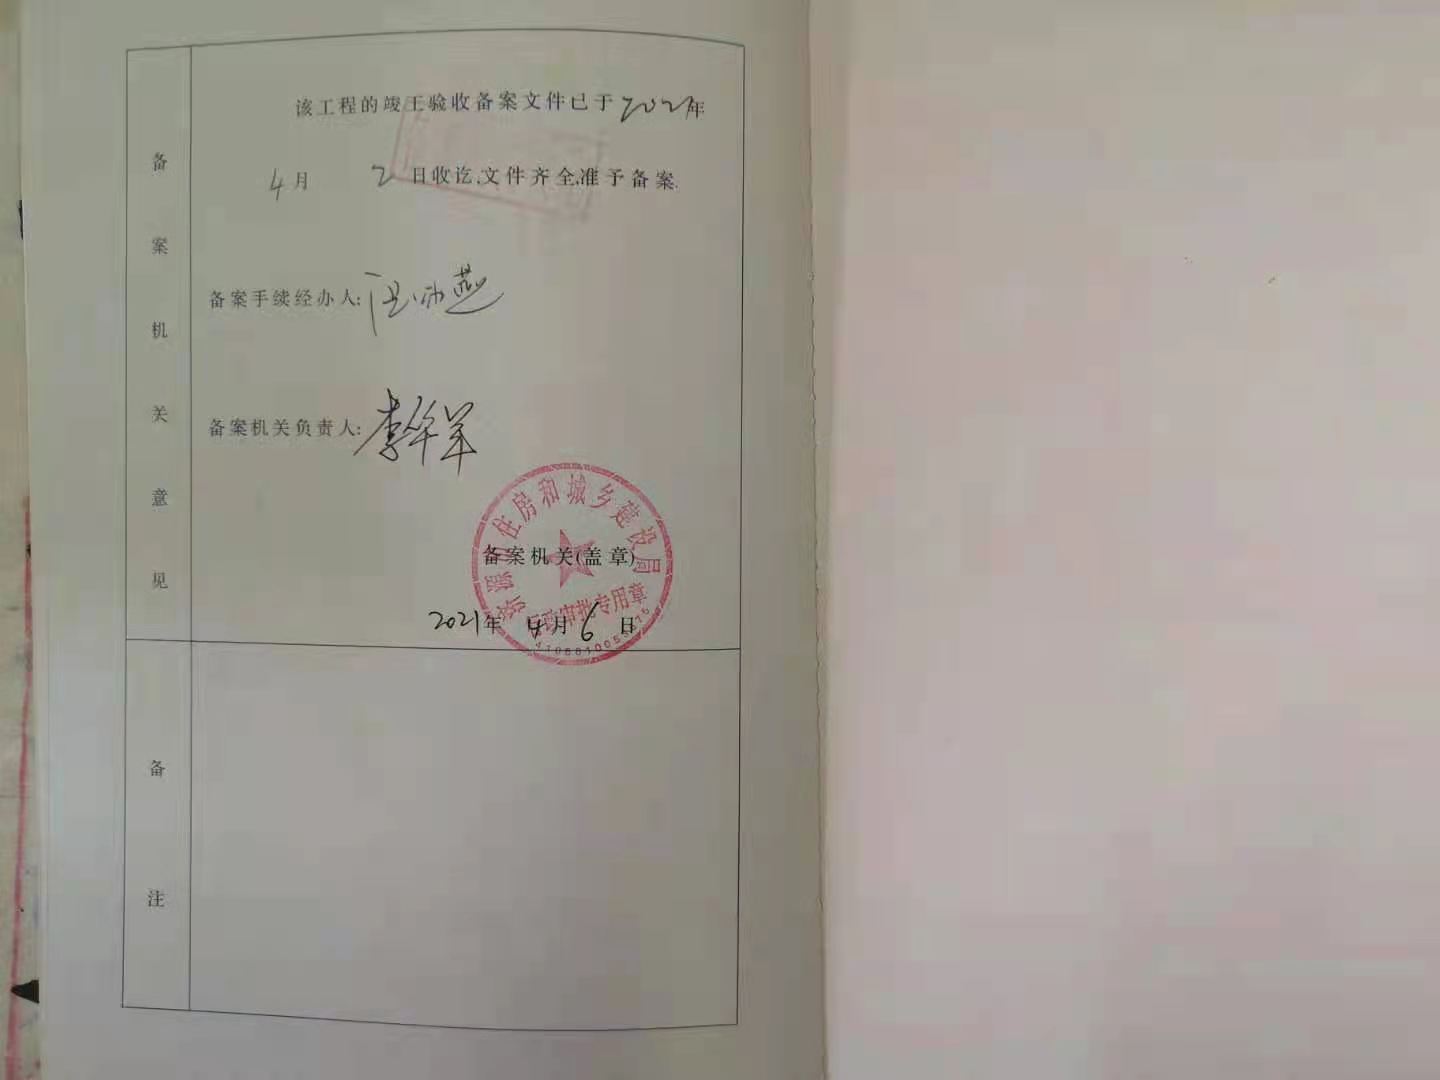 备案机关意见
该工程的竣工验收备案文件已于2021年
4月 2日收讫,文件齐全,准予备案.
备案手续经办人:
备案机关负责人:李华军
济源 住房和城乡建设局
备案机关(盖章)
行政审批专用章
2021年 4月 6 日
备注